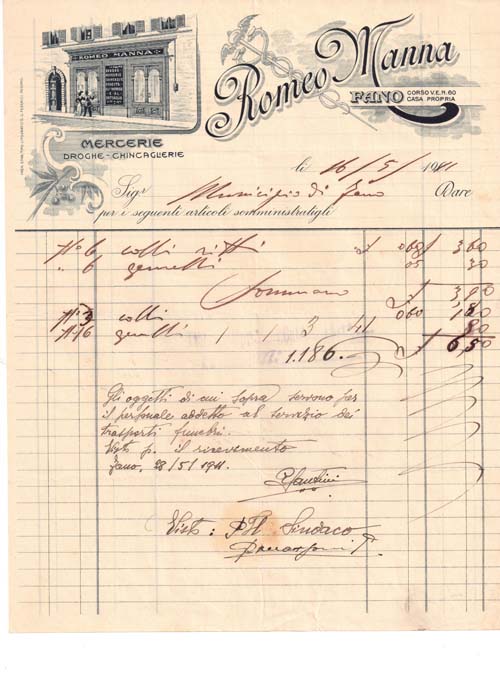 ROMEO MANNA
Romeo Manna
FANO CORSO V.E. N. 60
CASA PROPRIA
MERCERIE
DROGHE - CHINCAGLIERIE
li 16/5/1911
Sig.r Municipio di Fano Dare
per i seguenti articoli somministratigli
No 6 colli ritti 060 3,60
" 6 gemelli 05 30
Sommano 3,90
No 3 colli 060 1,80
6 gemelli 80
6,50
1.186.
Gli oggetti di cui sopra servono per
il personale addetto al servizio dei
trasporti funebri.
Visto p. il ricevimento
Fano, 28/5/1911.
Visto: Pel Sindaco